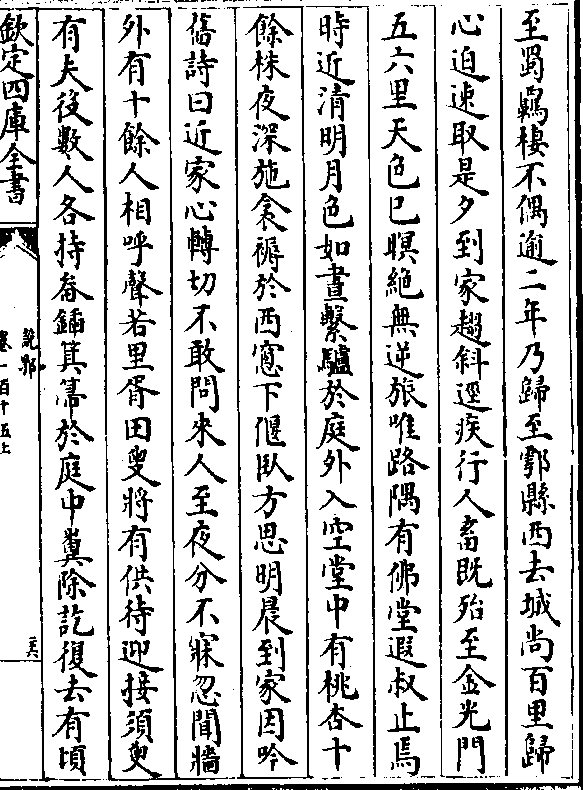 至蜀羈棲不偶逾二年乃歸至鄠縣西去城尚百里歸
心迫速取是夕到家趨斜逕疾行人畜既殆至金光門
五六里天色已暝絕無逆旅唯路隅有佛堂遐叔止焉
時近清明月色如晝繫驢於庭外入空堂中有桃杏十
餘株夜深施衾褥於西窻下偃臥方思明晨到家因吟
舊詩曰近家心轉切不敢問來人至夜分不寐忽聞牆
外有十餘人相呼聲若里胥田叟將有供待迎接須臾
有夫役數人各持畚鍤箕箒於庭中糞除訖復去有頃
欽定四庫全書
說郛
卷一百十五上